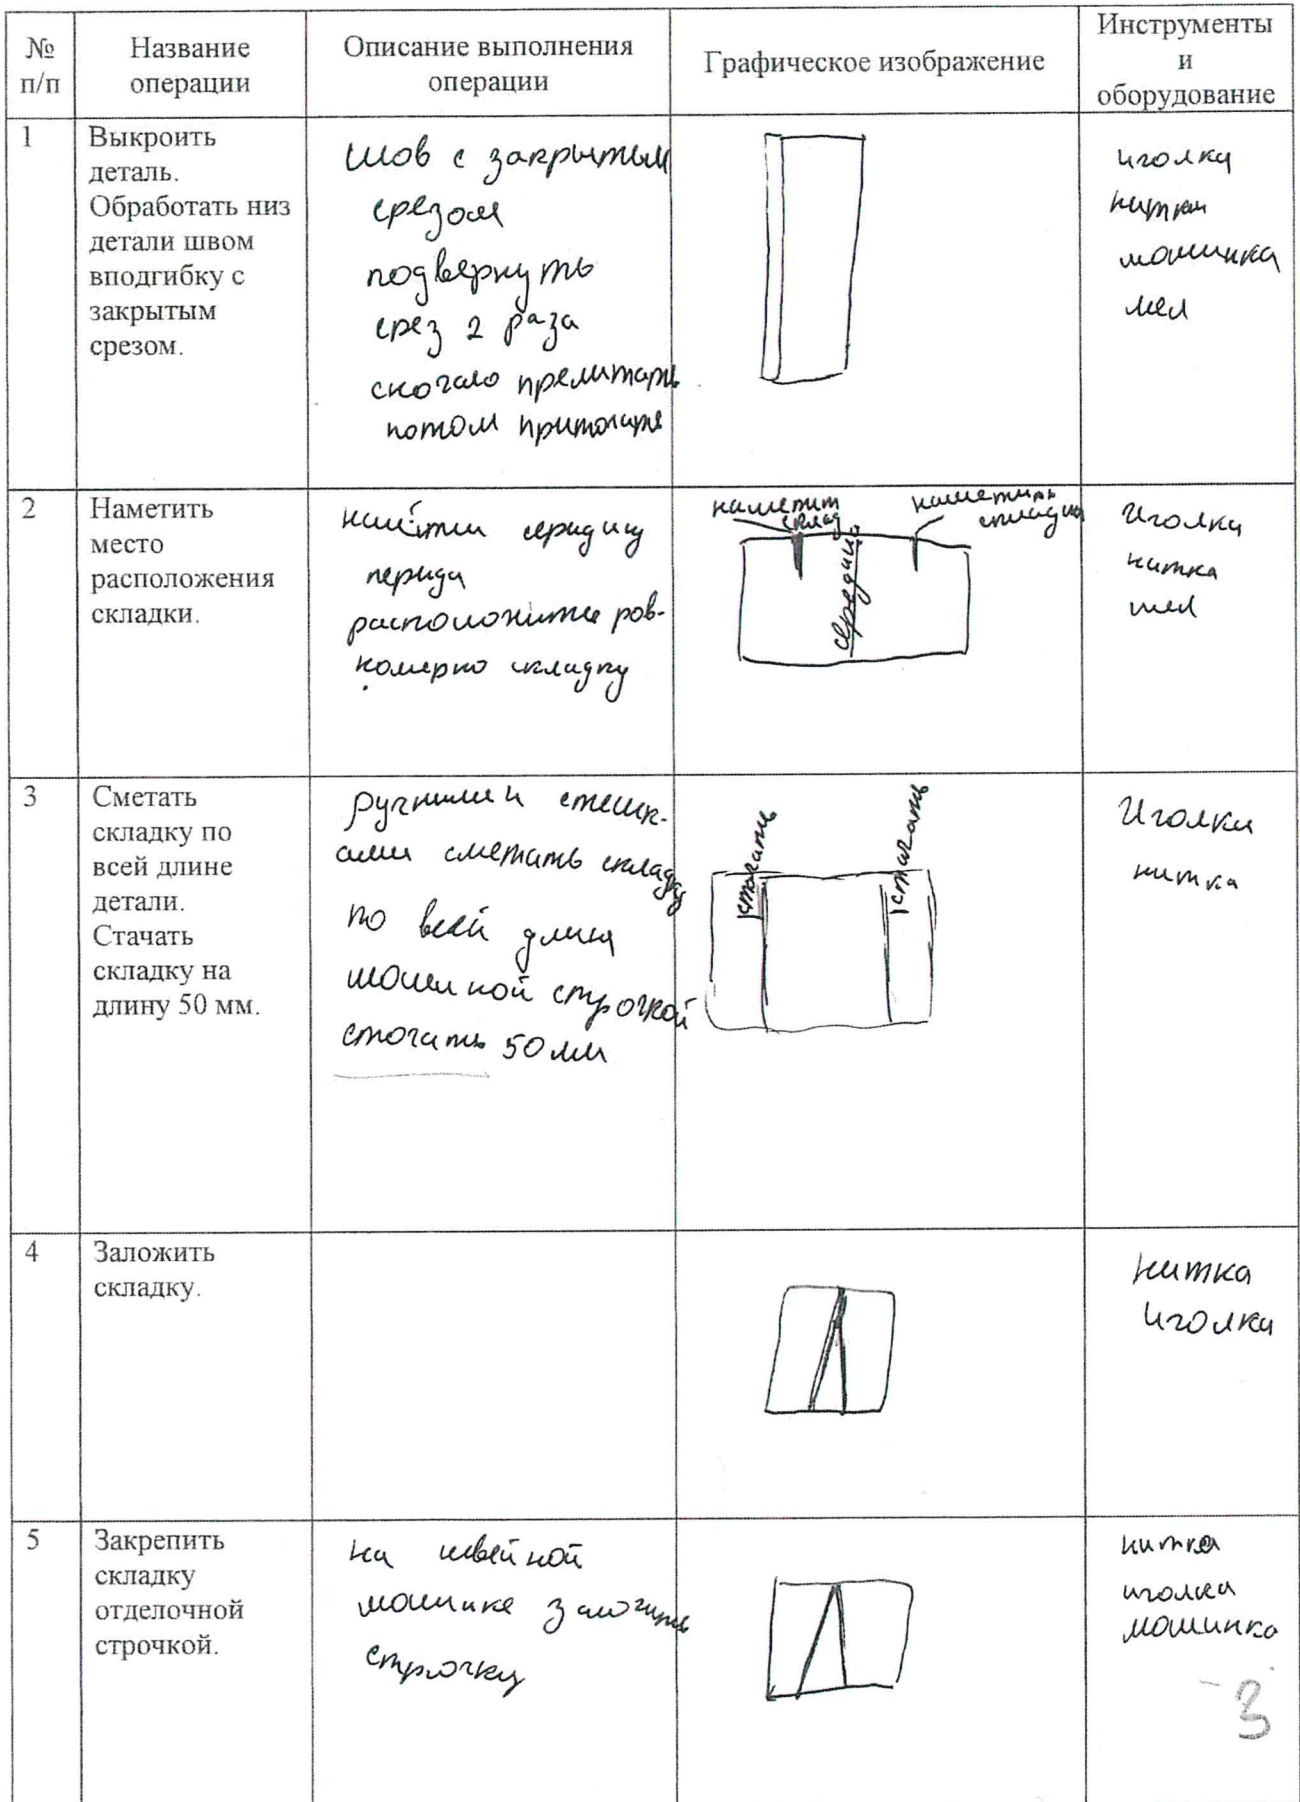 № п/п
Название операции
Описание выполнения операции
Графическое изображение
Инструменты и оборудование
1
Выкроить
деталь.
Обработать низ
детали швом
вподгибку с
закрытым
срезом.
шов с закрытым
срезом
подвернуть
срез 2 раза
потом
иголка
нитки
машинка
мел
2
Наметить
место
расположения
складки.
середину
рав-
номерно складку
наметит
склад
наметить
середина
Иголка
нитка
мел
3
Сметать
складку по
всей длине
детали.
Стачать
складку на
длину 50 мм.
сметать складку
по всей длина
строчкой
стогать 50 мм
стогать
стагать
Иголка
нитка
4
Заложить
складку.
нитка
иголка
5
Закрепить
складку
отделочной
строчкой.
на швейной
строчку
нитка
иголка
машинка
3